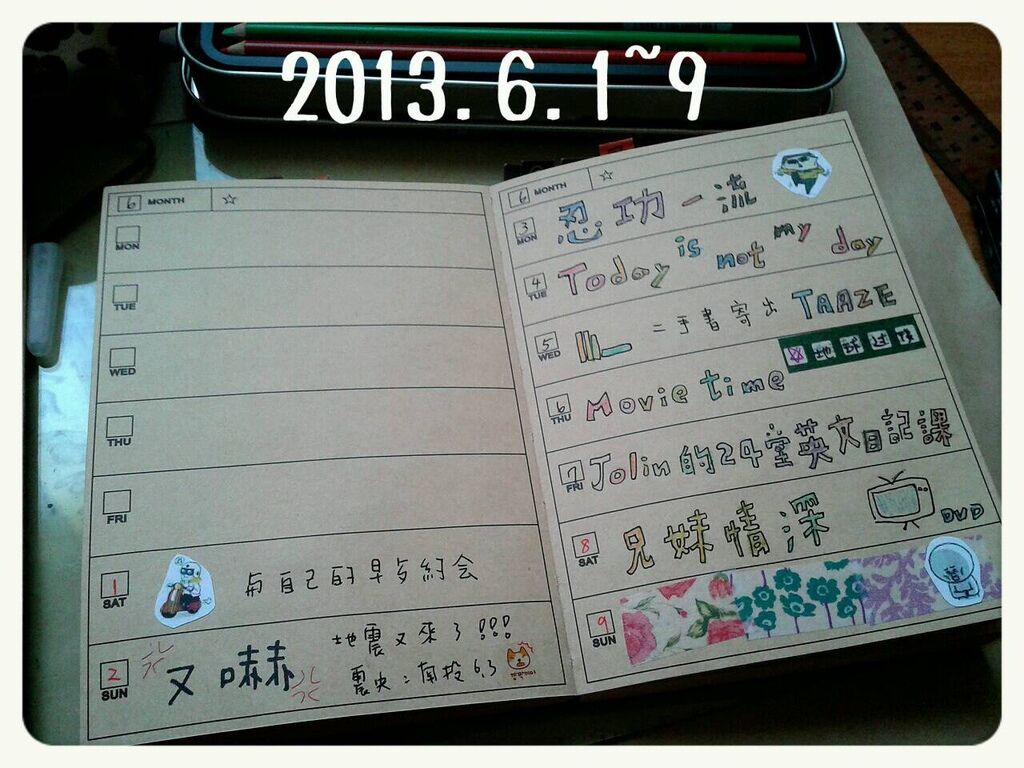 2013.6.1~9
6 MONTH ☆
MON
TUE
WED
THU
FRI
1 SAT 與自己的早午約会
2 SUN 又嚇
地震又來了!!!
震央:南投 6.3
6 MONTH ☆
3 MON 忍功一流
4 TUE Today is not my day
5 WED 二手書寄出 TAAZE
6 THU Movie time
☆地球过後
7 FRI Jolin的24堂英文日記課
8 SAT 兄妹情深 DVD
9 SUN